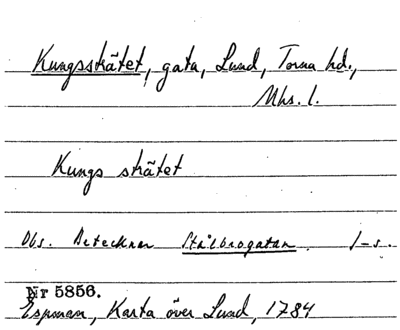 Kungsstrãtet, gata, Lund, Torna hd.,
Mhs. l.
Kungs strãtet
Obs. Betecknar Stålbrogatan. J-s.
Nr 5856.
Espman, Karta över Lund, 1784